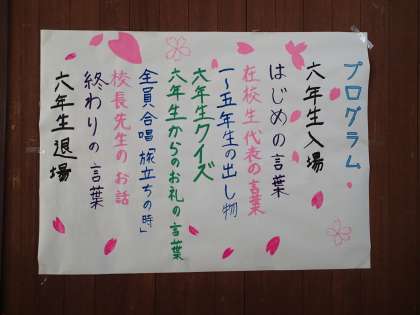 プログラム
六年生入場
はじめの言葉
在校生代表の言葉
一～五年生の出し物
六年生クイズ
六年生からのお礼の言葉
全員合唱「旅立ちの時」
校長先生のお話
終わりの言葉
六年生退場